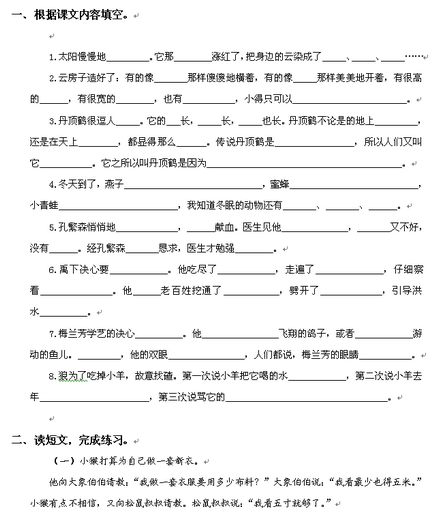 一、根据课文内容填空。
1.太阳慢慢地________。它那_______涨红了,把身边的云染成了____、____、____……
2.云房子造好了：有的像______那样傻傻地横着，有的像____那样美美地开着，有很高
的_____，有很宽的_______，也有_________，小得只可以____________________。
3.丹顶鹤很逗人____。它的___长，____长，____也长。丹顶鹤不论是的地上________，
还是在天上_______，都显得那么______。传说丹顶鹤是______________，所以人们又叫
它_________。它之所以叫丹顶鹤是因为___________________________________。
4.冬天到了，燕子________________________，蜜蜂________________________，
小青蛙_____________________，我知道冬眠的动物还有______、______、_____。
5.孔繁森悄悄地___________，_____献血。医生见他____________，______又不好，
没有_____。经孔繁森______恳求，医生才勉强_______。
6.禹下决心要__________。他吃尽了__________，走遍了____________，仔细察
看_____________。他_____老百姓挖通了__________，劈开了___________，引导洪
水________。
7.梅兰芳学艺的决心_________。他______________飞翔的鸽子，或者__________游
动的鱼儿。________，他的双眼_____________，人们都说，梅兰芳的眼睛_________。
8.狼为了吃掉小羊，故意找碴。第一次说小羊把它喝的水__________，第二次说小羊去
年___________________，第三次说骂它的____________________________。
二、读短文，完成练习。
（一）小猴打算为自己做一套新衣。
他向大象伯伯请教：“我做一套衣服要用多少布料？”大象伯伯说：“我看最少也得五米。”
小猴有点不相信，又向松鼠叔叔请教。松鼠叔叔说：“我看五寸就够了。”